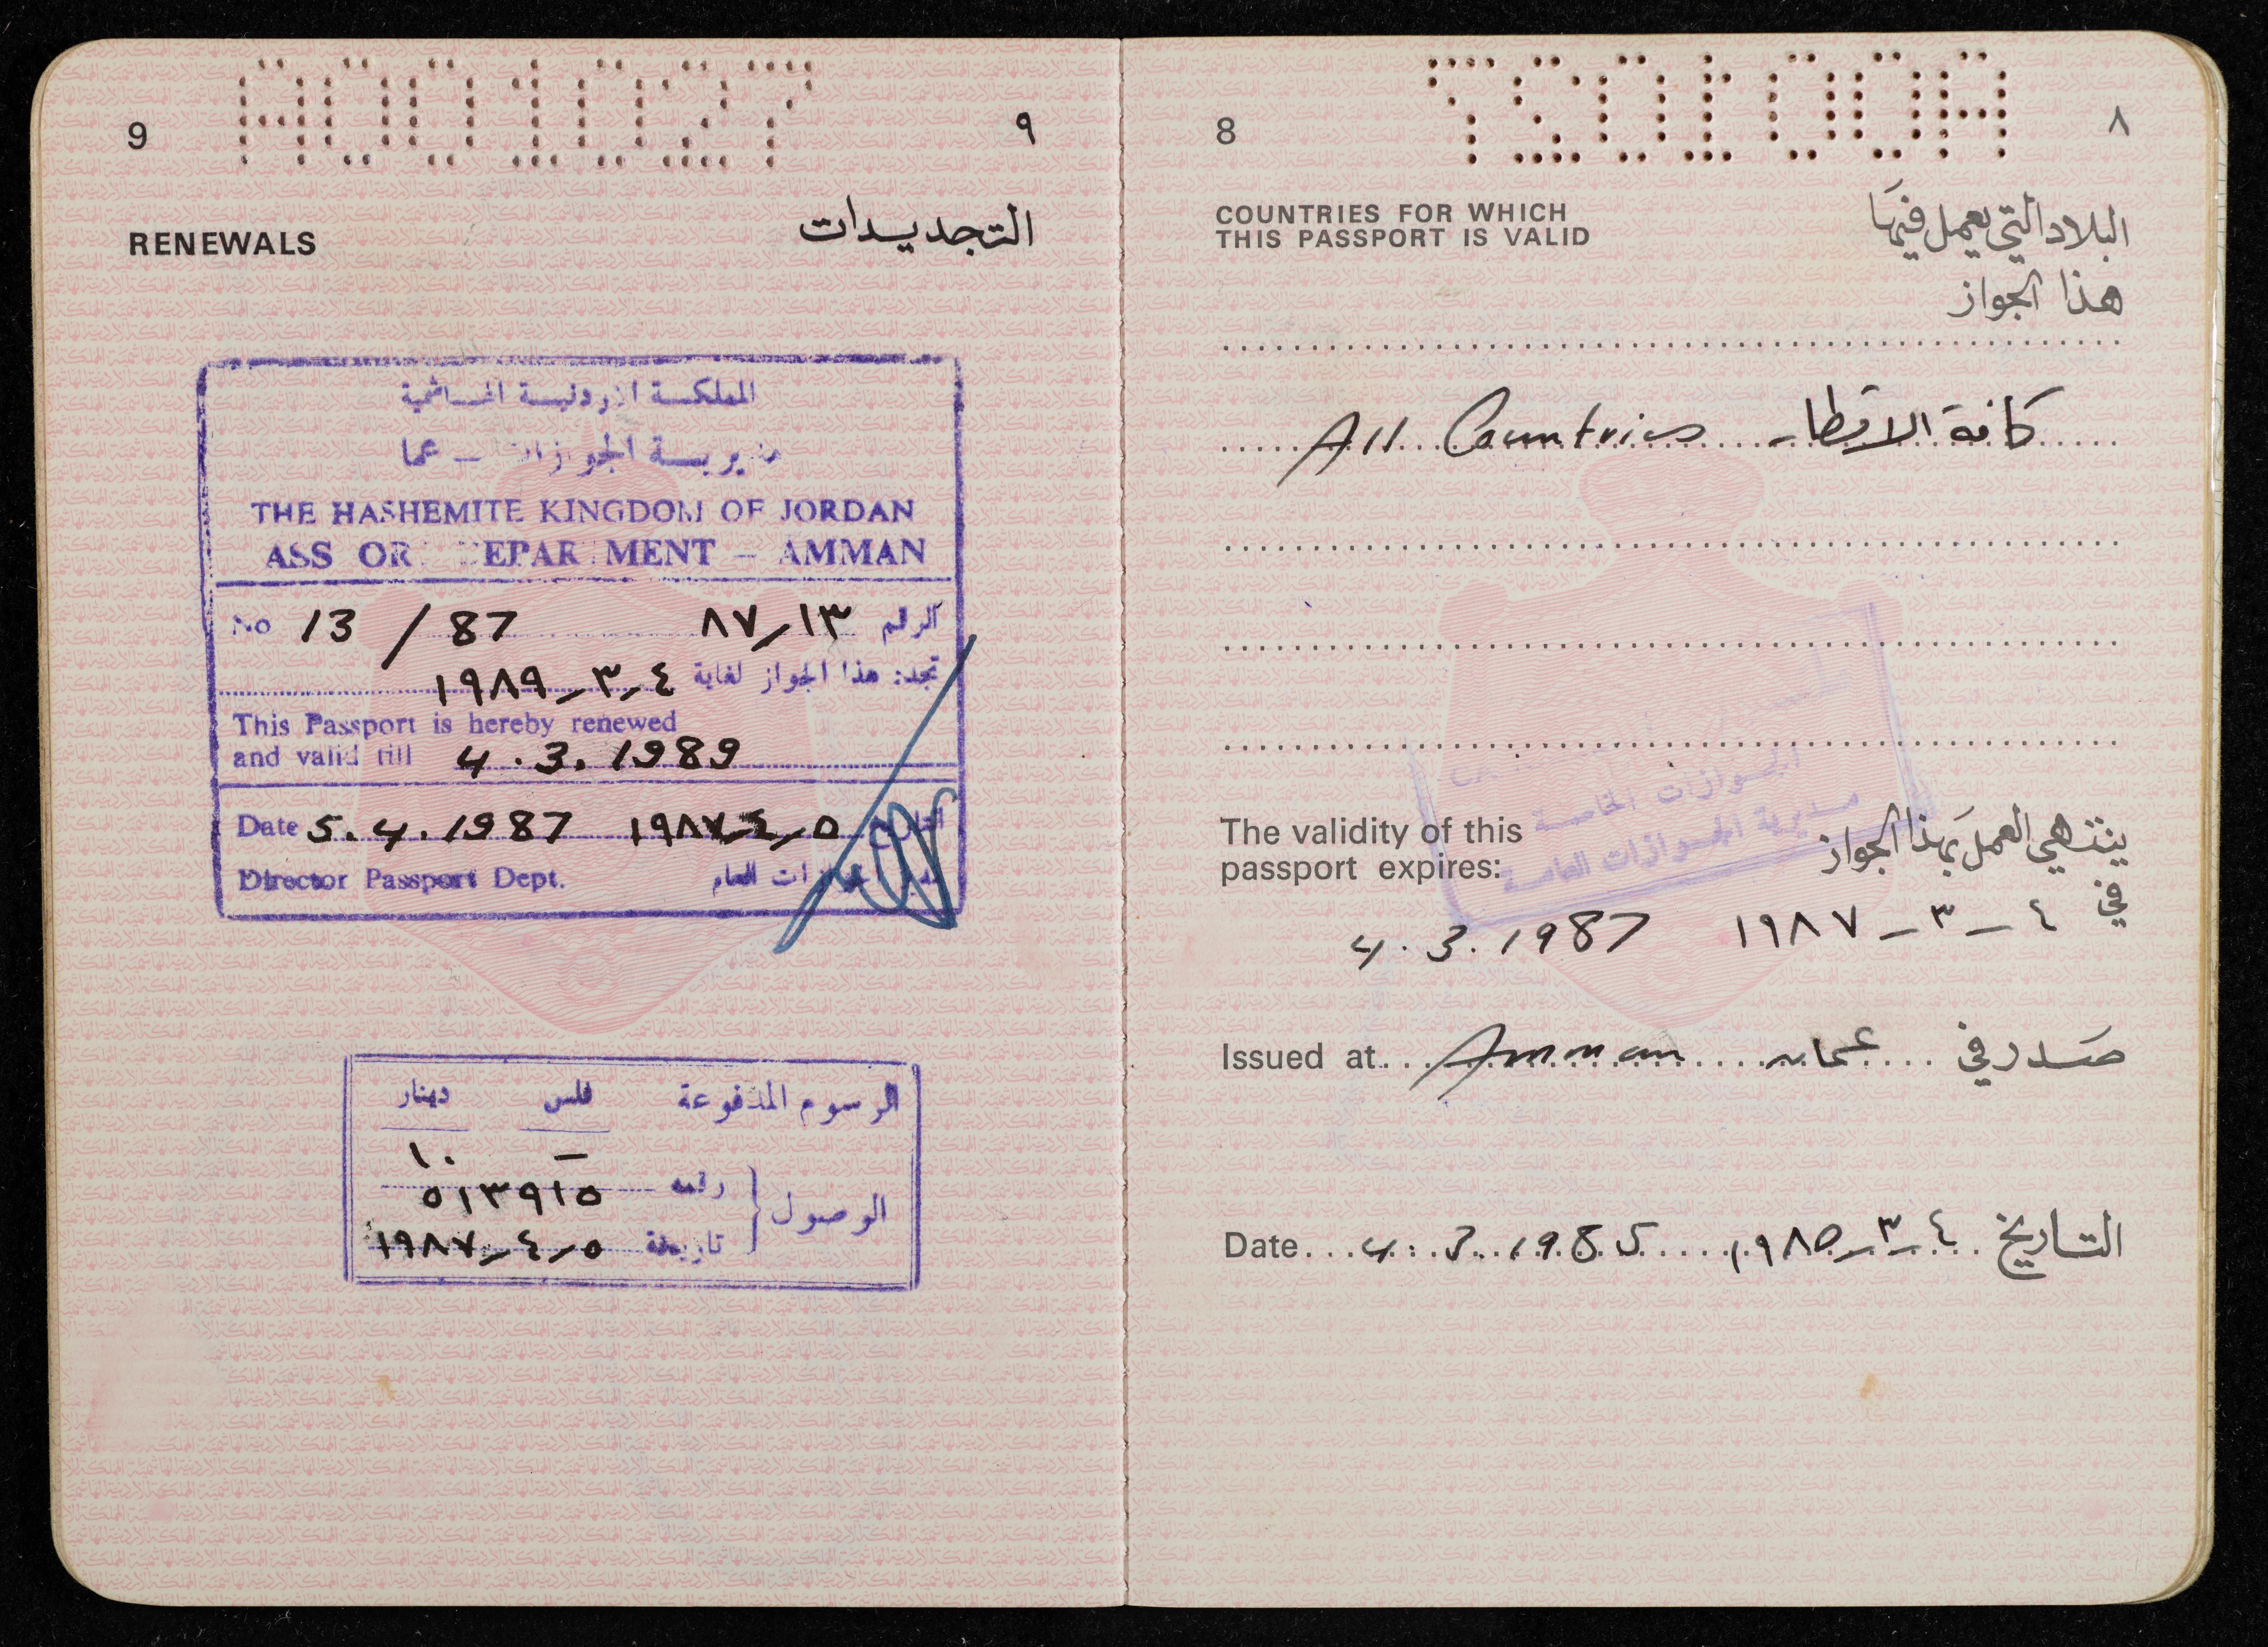 A001027
9 ٩
RENEWALS التجديدات
المملكة الاردنية الهاشمية
مديرية الجوازات – عما
THE HASHEMITE KINGDOM OF JORDAN
ASS OR EPAR MENT – AMMAN
No 13 / 87 ٨٧/١٣ الرقم
تجدد هذا الجواز لغاية ٤-٣-١٩٨٩
This Passport is hereby renewed
and valid till 4.3.1989
Date 5.4.1987 ١٩٨٧-٤-٥ التاريخ
Director Passport Dept. مدير الجوازات العام
الرسوم المدفوعة فلس دينار
— ١٠
الوصول رقمه ٥١٣٩١٥
تاريخه ١٩٨٧-٤-٥
A001027
8 ٨
COUNTRIES FOR WHICH البلاد التي يعمل فيها
THIS PASSPORT IS VALID هذا الجواز
All Countries كافة الاقطار
الجوازات الخاصة
مديرية الجوازات العامة
The validity of this ينتهي العمل بهذا الجواز
passport expires: في
4.3.1987 ٤-٣-١٩٨٧
Issued at Amman صدر في عمان
Date 4.3.1985 التاريخ ٤-٣-١٩٨٥